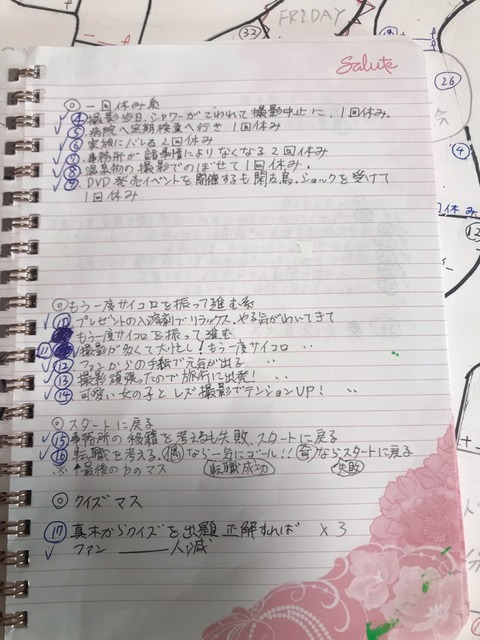 FRIDAY
33
Salute
26
◎一回休み系
④撮影当日、シャワーがこわれて撮影中止に、1回休み。
⑤病院へ定期検査へ行き1回休み
⑥実家にバレる2回休み
⑦事務所が諸事情によりなくなる2回休み
⑧温泉物の撮影でのぼせて1回休み。
⑨DVD発売イベントを開催するも閑古鳥。ショックを受けて
1回休み
④
休み
12
◎もう一度サイコロを振って進む系
⑩プレゼントの入浴剤でリラックス。やる気がわいてきて
もう一度サイコロを振って進む
⑪撮影が多くて大忙し!もう一度サイコロ 〃
⑫ファンからの手紙で元気が出る 〃
⑬撮影頑張ったので旅行に出発! 〃
⑭可愛い女の子とレズ撮影でテンションUP! 〃
◎スタートに戻る
⑮事務所の移籍を考えるも失敗、スタートに戻る
⑯転職を考える。偶なら一気にゴール!!奇ならスタートに戻る
※↑最後の方のマス 転職成功 失敗
◎クイズマス
⑰真木からクイズを出題 正解すれば ×3
ファン 人減